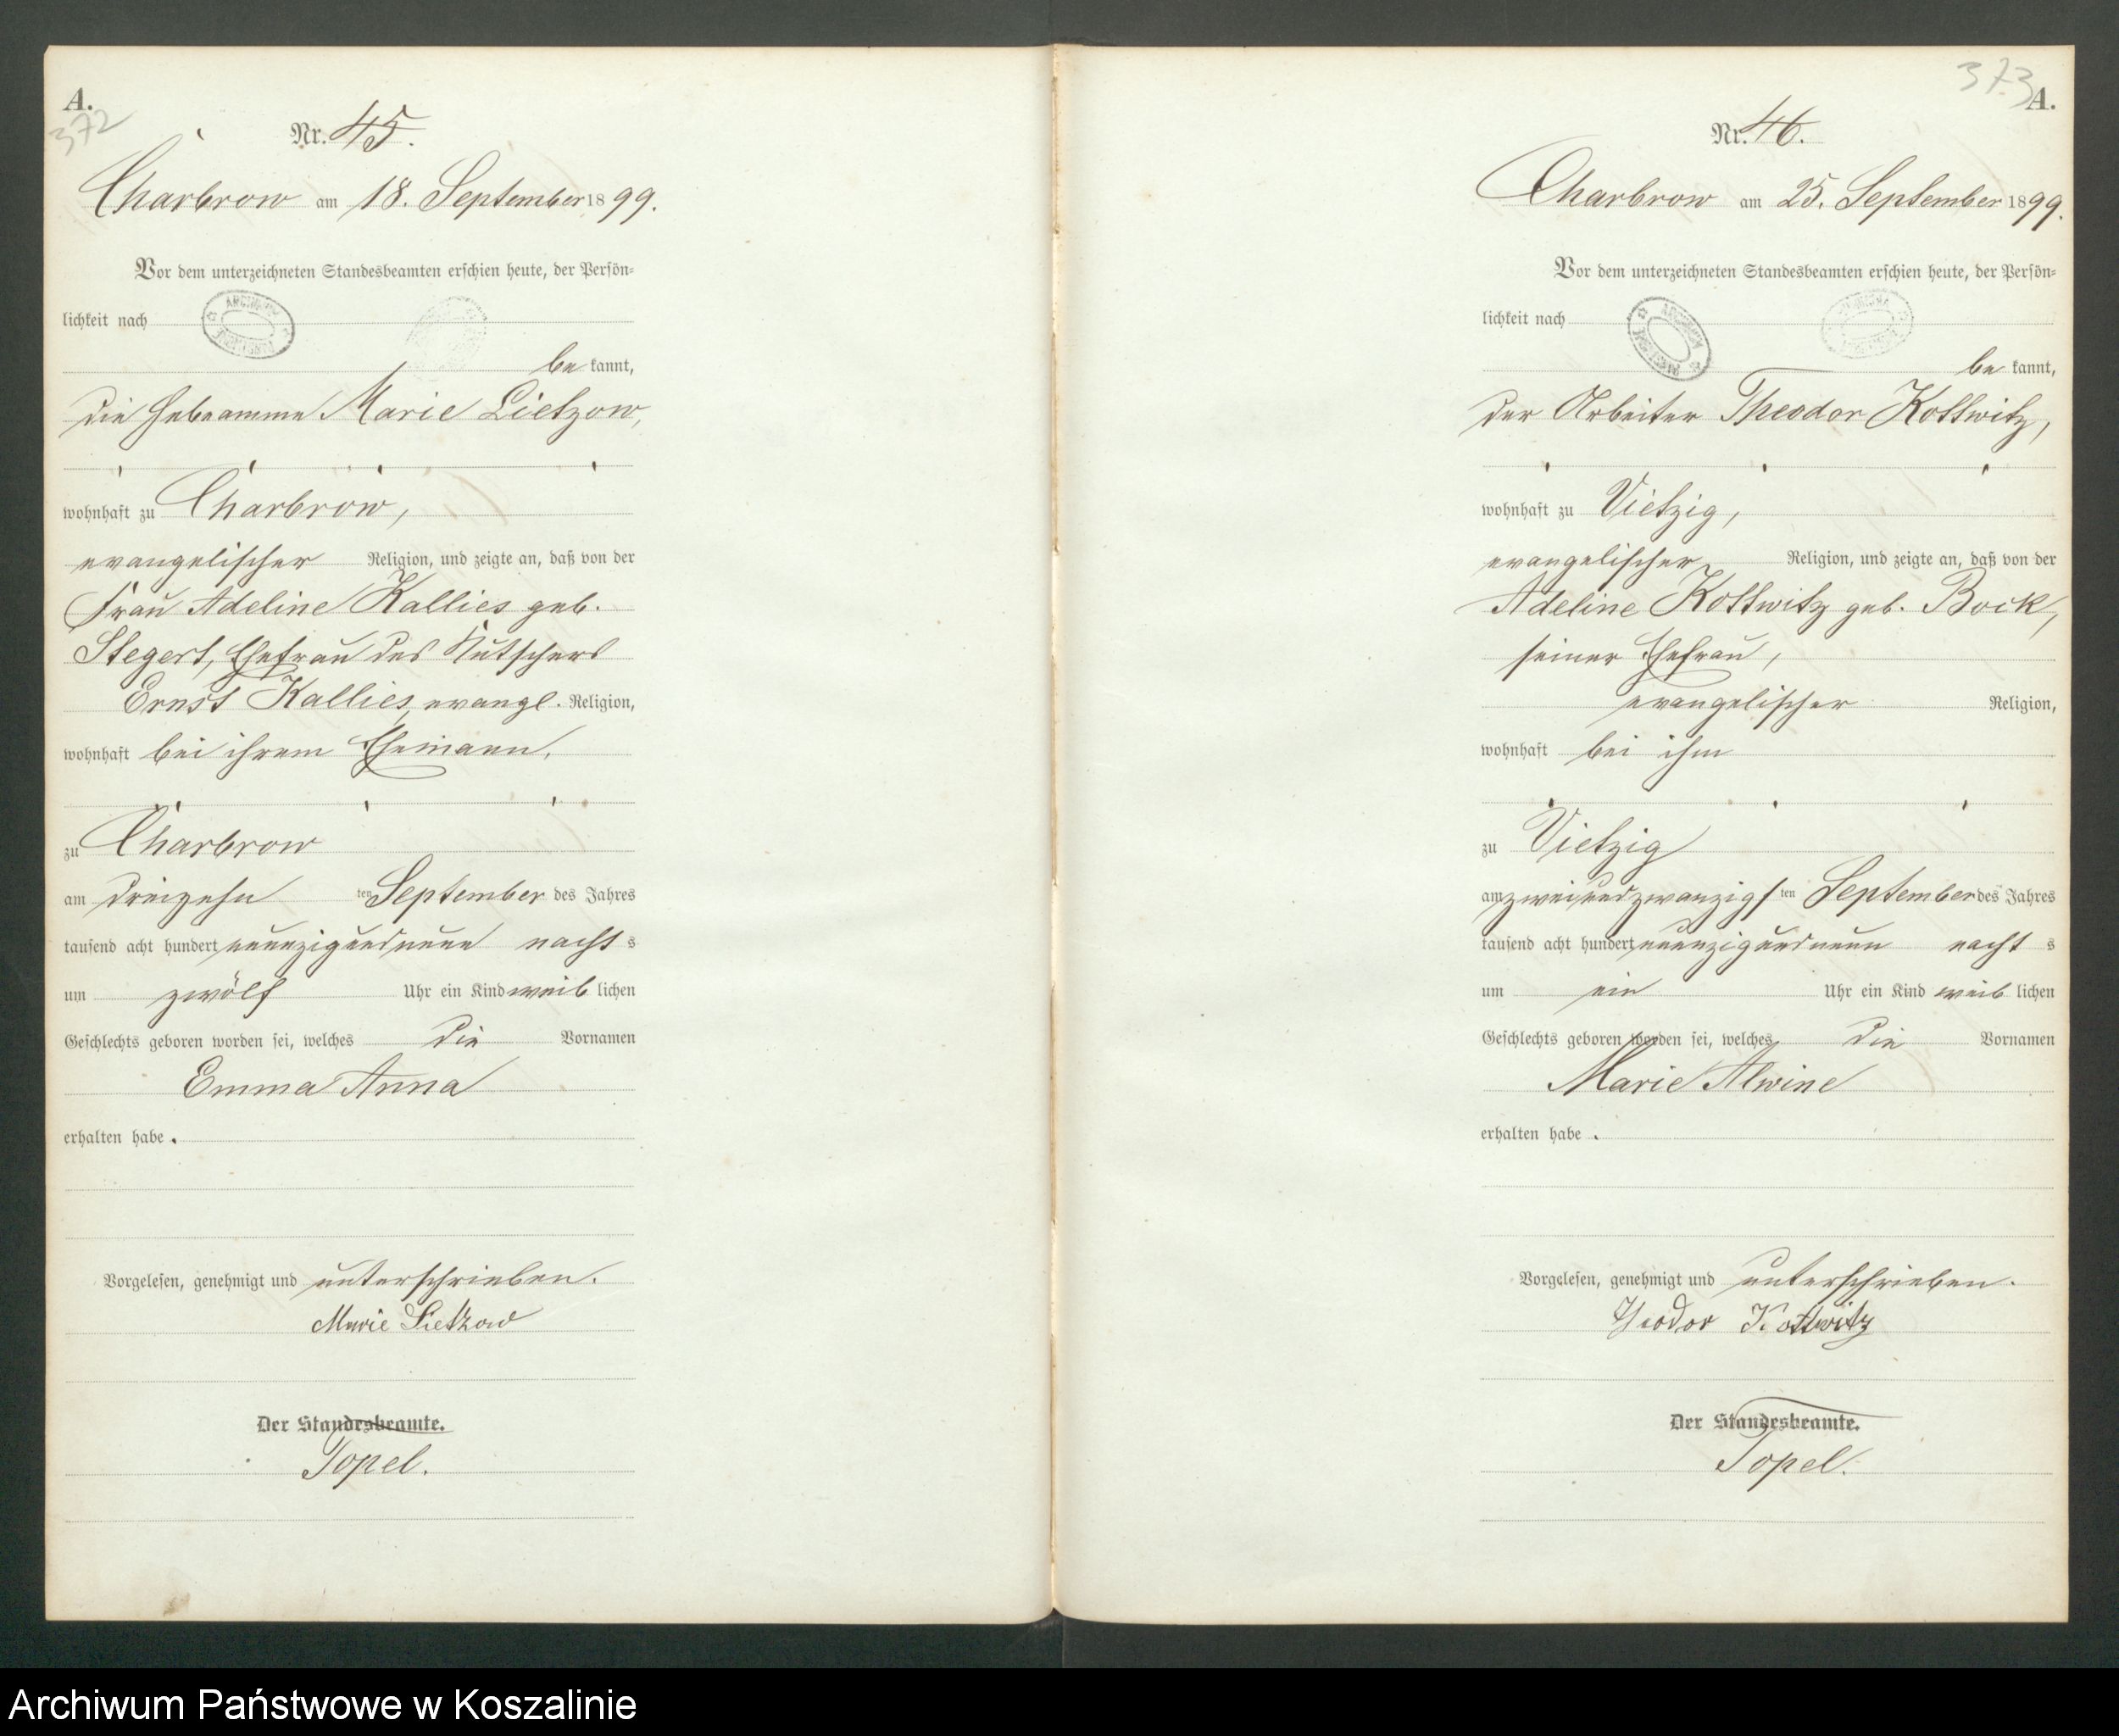 A.
372
Nr. 45.
Charbrow am 18. September 1899.
Vor dem unterzeichneten Standesbeamten erschien heute, der Persön-
lichkeit nach
be kannt,
die Hebeamme Marie Lietzow,
wohnhaft zu Charbrow,
evangelischer Religion, und zeigte an, daß von der
Frau Adeline Kallies geb.
Stegert, Ehefrau des Kutschers
Ernst Kallies, evangl. Religion,
wohnhaft bei ihrem Ehemann,
zu Charbrow
am dreizehn ten September des Jahres
tausend acht hundert neunzigundneun nacht s
um zwölf Uhr ein Kind weib lichen
Geschlechts geboren worden sei, welches die Vornamen
Emma Anna
erhalten habe.
Vorgelesen, genehmigt und unterschrieben.
Marie Lietzow
Der Standesbeamte.
Topel.
373
A.
Nr. 46.
Charbrow am 25. September 1899.
Vor dem unterzeichneten Standesbeamten erschien heute, der Persön-
lichkeit nach
be kannt,
der Arbeiter Theodor Kottwitz,
wohnhaft zu Vietzig,
evangelischer Religion, und zeigte an, daß von der
Adeline Kottwitz geb. Bock,
seiner Ehefrau,
evangelischer Religion,
wohnhaft bei ihm
zu Vietzig
am zweiundzwanzigs ten September des Jahres
tausend acht hundert neunzigundneun nacht s
um ein Uhr ein Kind weib lichen
Geschlechts geboren worden sei, welches die Vornamen
Marie Alwine
erhalten habe.
Vorgelesen, genehmigt und unterschrieben.
Theodor Kottwitz
Der Standesbeamte.
Topel.
Archiwum Państwowe w Koszalinie